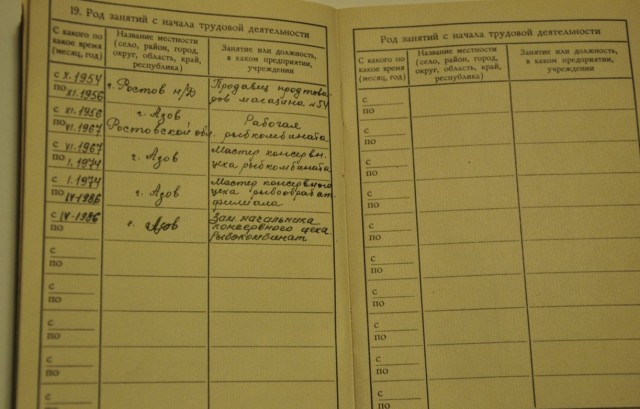 19. Род занятий с начала трудовой деятельности
С какого по
какое время
(месяц, год)
Название местности
(село, район, город,
округ, область, край,
республика)
Занятие или должность,
в каком предприятии,
учреждении
с X.1954
по XI.1956
г. Ростов н/Д
Продавец продтова-
дов магазина №54
с XI.1956
по VI.1967
г. Азов
Ростовской обл.
Рабочая
рыбкомбината
с VI.1967
по I.1974
г. Азов
Мастер консервн.
цеха рыбкомбината
с I.1974
по IV-1986
г. Азов
Мастер консервного
цеха рыбообработ.
филиала
с IV-1986
по
г. Азов
Зам. начальника
консервного цеха
Рыбокомбинат
с
по
с
по
с
по
с
по
с
Род занятий с начала трудовой деятельности
С какого по
какое время
(месяц, год)
Название местности
(село, район, город,
округ, область, край,
республика)
Занятие или должность,
в каком предприятии,
учреждении
с
по
с
по
с
по
с
по
с
по
с
по
с
по
с
по
с
по
с